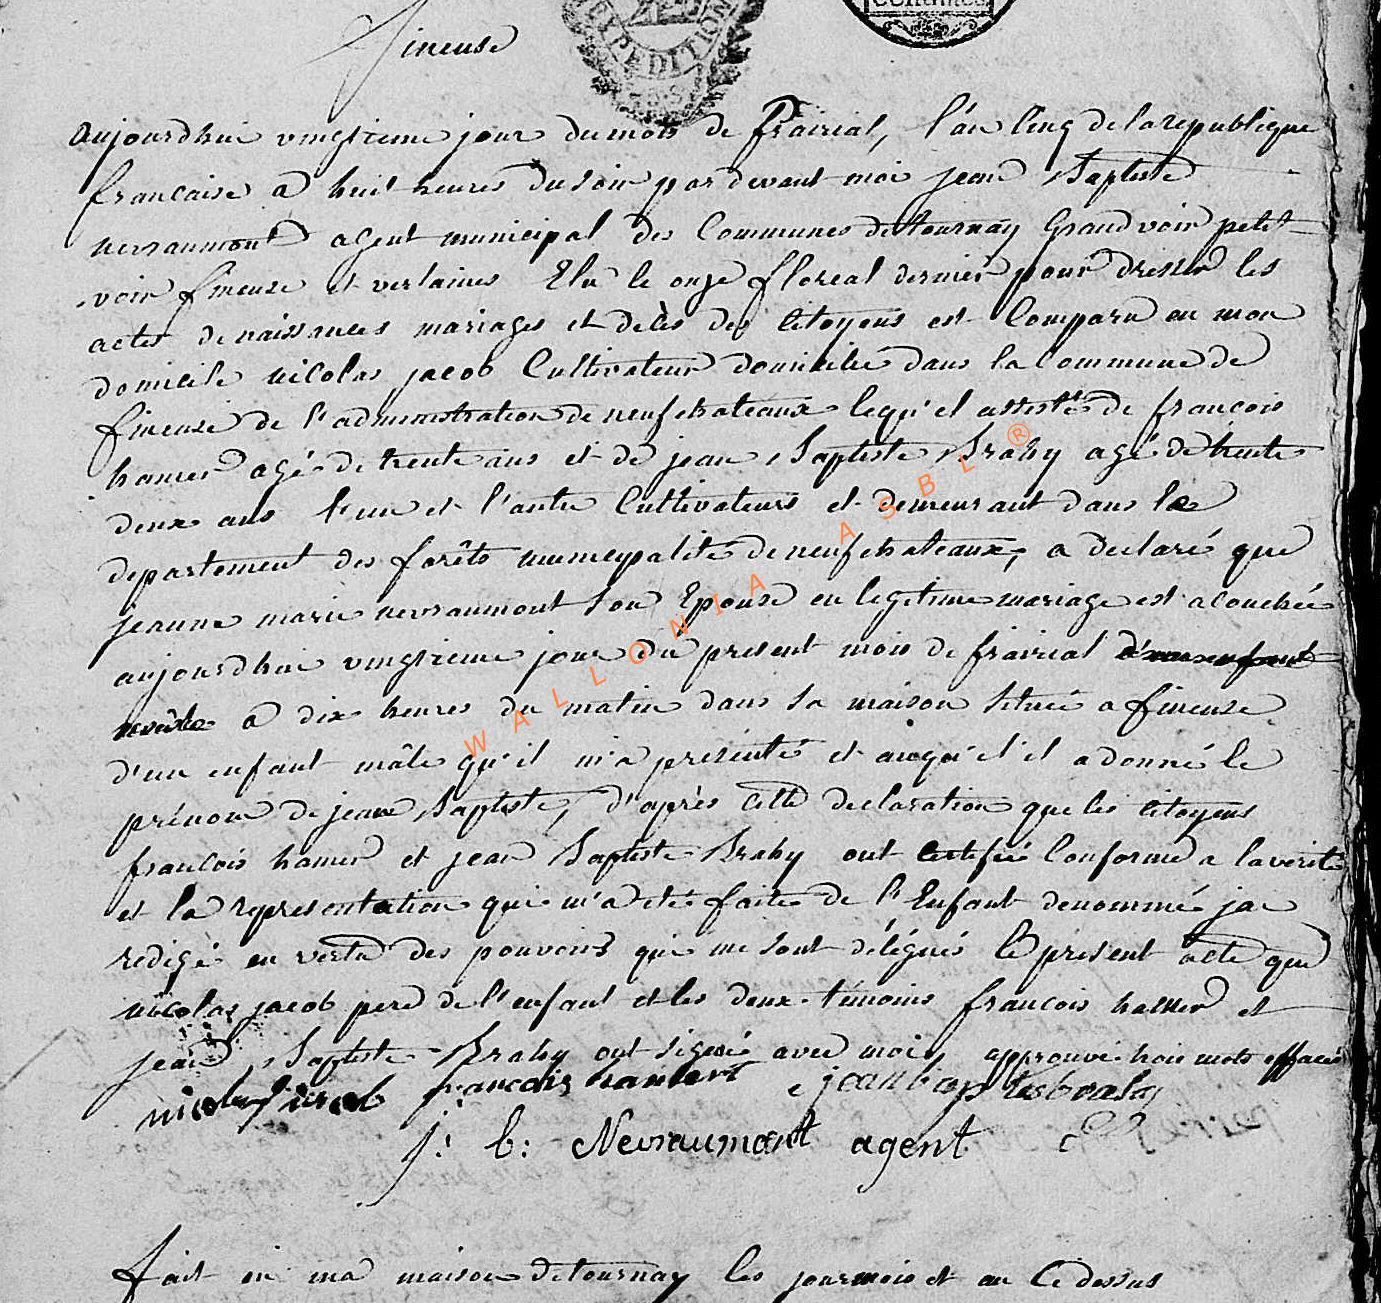 fineuse
EXPEDITION
CENTIMES
aujourdhui vingtieme jour du mois de Prairial, l'an Cinq de la republique
francaise a huit heures du soir par devant moi jean Baptiste
nevraumont agent municipal des Communes de tournay Grandvoir petit
voir fineuse et verlaines Elu le onze floreal dernier pour dresser les
actes de naissances mariages et deces des Citoyens est Comparu en mon
domicile nicolas jacob Cultivateur domicilié dans la Commune de
fineuse de l'administration de neufchateaux lequ'el assisté de francois
hamer agé de trente ans et de jean Baptiste Brahy agé de trente
deux ans l'un et l'autre Cultivateurs et demeurant dans le
departement des forêts municypalité de neufchateaux, a declaré que
jeanne marie nevraumont son Epouse en legitime mariage est acouchée
aujourdhui vingtieme jour du present mois de frairial
a dix heures du matin dans sa maison située a fineuse
d'un enfant mâle qu'il m'a présenté et auqu'el il a donné le
prénom de jean Baptiste, d'après cette declaration que les Citoyens
francois hamer et jean Baptiste Brahy ont Certifié Conforme a la verité
et la representation qui m'a eté faite de l'Enfant denommé jai
redigé en vertu des pouvoirs qui me sont délégués le présent acte que
nicolas jacob pere de l'enfant et les deux témoins francois hamer et
jean Baptiste Brahy ont signé avec moi, approuvé trois mots effacés
nicolas jacob francois hambert jean baptiste brahy
j: b: Nevraumont agent
fait en ma maison de tournay les jour mois et an Ci dessus
WALLONIA ASBL ®